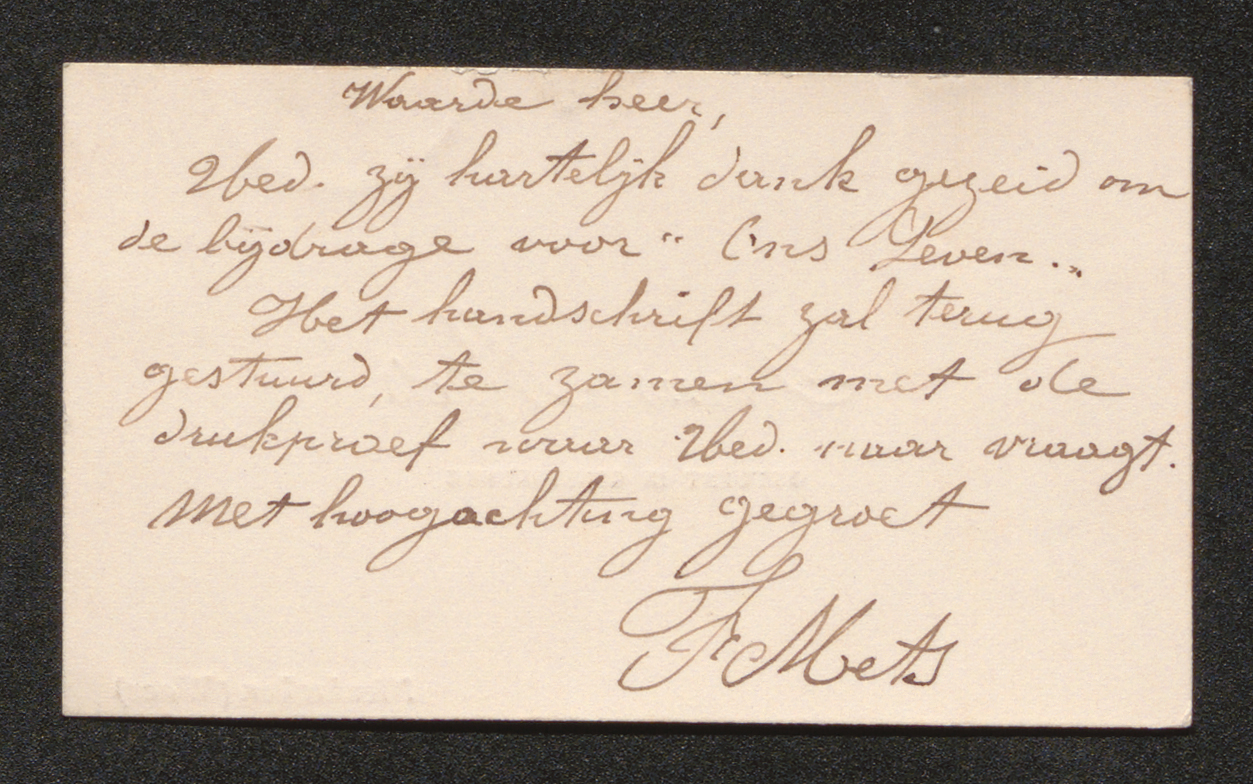 Waarde heer,
Ubed. zÿ hartelÿk dank gezeid om
de bÿdrage voor " Ons Leven. "
Het handschrift zal terug
gestuurd, te zamen met de
drukproef waar Ubed. naar vraagt.
Met hoogachting gegroet
Fr Mets